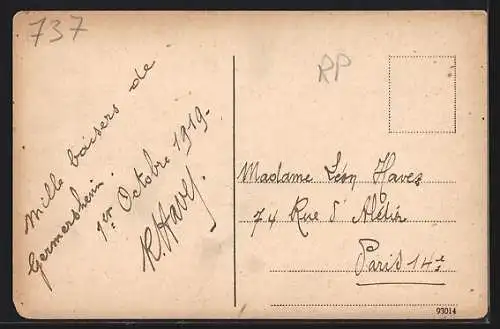 737
RP
Mille baisers de
Germersheim
1er Octobre 1919-
R. Haves.
Madame Léon Haves
74 Rue d'Alésia
Paris 14e
93014